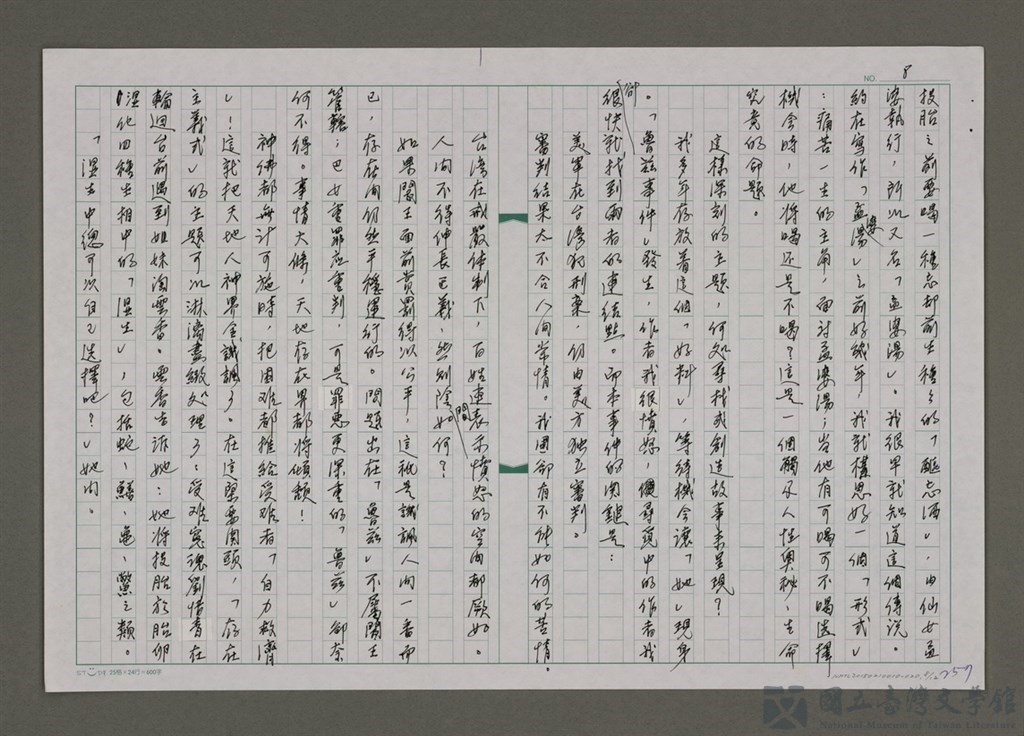 NO. 8
投胎之前要喝一種忘却前生種種的「醧忘湎」,由仙女孟
婆執行,所以又名「孟婆湯」。我很早就知道這個傳說。
約在寫作「孟婆湯」之前好幾年,我就構思好一個「形式」
:痛苦一生的主角,面對孟婆湯;当他有可喝可不喝选擇
機会時,他將喝还是不喝?這是一個觸及人性奧秘、生命
究竟的命題。
這樣深刻的主題,何処尋找或創造故事來呈現?
我多年存放着這個「好料」,等待機会讓「她」現身
。「魯茲事件」發生,作者我很憤怒,儇尋覓中的作者我
卻很快就找到兩者的連結點。即本事件的関鍵是:
美軍在台灣犯刑案,仍由美方独立審判。
審判結果太不合人间常情。我国卻有不能如何的苦情。
台湾在戒嚴体制下,百姓連表示憤怒的空间都厥如。
人间不得伸長正義,然則陰間如何?
如果閻王面前賞罰得以公平,這祗是諷諷人间一番而
已,存在间仍然平穩運行的。問題出在「魯茲」不屬閻王
管轄;巴女重罪应重判,可是罪悪更深重的「魯茲」卻奈
何不得。事情大條,天地存在界都將傾頹!
神佛都無計可施時,把困难都推給受难者「自力救濟
」!這就把天地人神界全諷諷了。在這緊要関頭,「存在
主義式」的主題可以淋漓盡緻处理了:受难寃魂劉惜青在
輪迴台前遇到姐妹淘雲香。雲香告訴她:她將投胎於胎卵
湿化四種生相中的「湿生」,包括蛇、鱔、龟、鱉之類。
「湿生中總可以自己选擇吧?」她问。
DY 25格×24行=600字
257
國立臺灣文學館
National Museum of Taiwan Literature